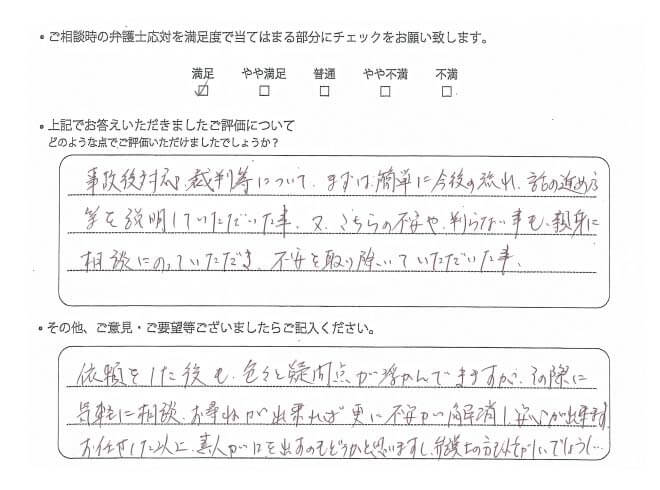 • ご相談時の弁護士応対を満足度で当てはまる部分にチェックをお願い致します。
満足 やや満足 普通 やや不満 不満
☑ □ □ □ □
• 上記でお答えいただきましたご評価について
どのような点でご評価いただけましたでしょうか?
事故後対応、裁判等について、まずは、簡単に今後の流れ、話の進め方
等を説明していただいた事、又、こちらの不安や、判らない事も、親身に
相談にのっていただき、不安を取り除いていただいた事、
• その他、ご意見・ご要望等ございましたらご記入ください。
依頼をした後も、色々と疑問点が浮かんできますが、その際に
気軽に相談、お尋ねが出来れば更に不安が解消し、安心が出来ます
お任せした以上、素人が口を出すのもどうかと思いますし、弁護士の方も忙がしいでしょうし…